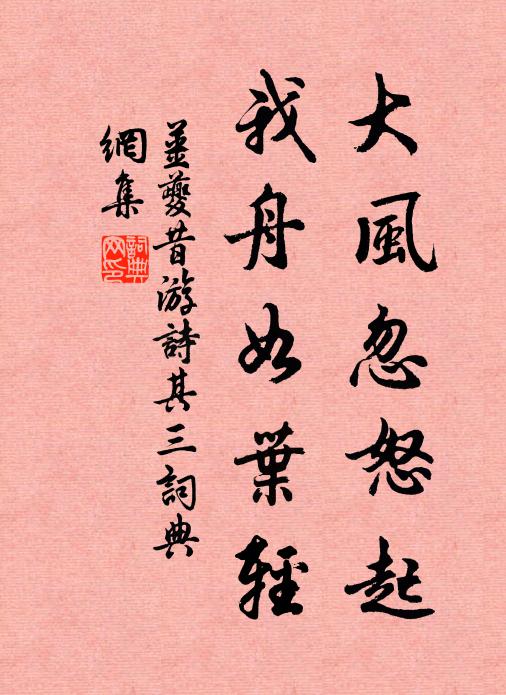 大風忽怒起
我舟如葉輕
姜夔昔游詩其三詞典
網集
詞典網印